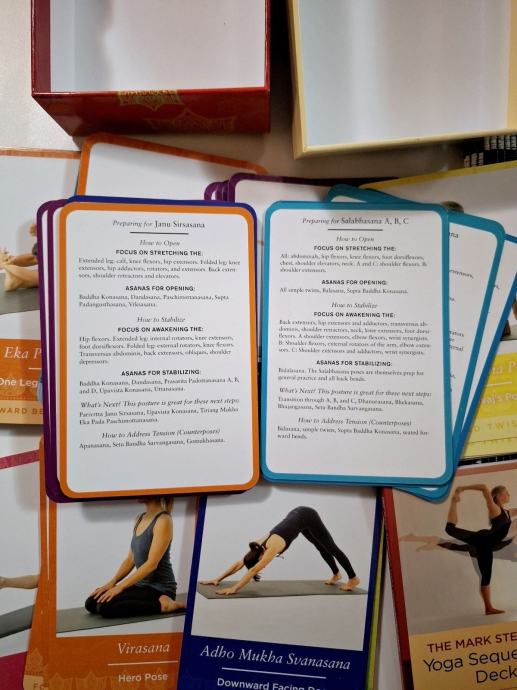 Preparing for Janu Sirsasana
How to Open
FOCUS ON STRETCHING THE:
Extended leg: calf, knee flexors, hip extensors. Folded leg: knee
extensors, hip adductors, rotators, and extensors. Back exten-
sors, shoulder retractors and elevators.
ASANAS FOR OPENING:
Baddha Konasana, Dandasana, Paschimottanasana, Supta
Padangusthasana, Vrksasana.
How to Stabilize
FOCUS ON AWAKENING THE:
Hip flexors. Extended leg: internal rotators, knee extensors,
foot dorsiflexors. Folded leg: external rotators, knee flexors.
Transversus abdominis, back extensors, obliques, shoulder
depressors.
ASANAS FOR STABILIZING:
Baddha Konasana, Dandasana, Prasarita Padottanasana A, B,
and D, Upavista Konasana, Uttanasana.
What's Next? This posture is great for these next steps:
Parivrtta Janu Sirsasana, Upavista Konasana, Tiriang Mukha
Eka Pada Paschimottanasana.
How to Address Tension (Counterposes)
Apanasana, Setu Bandha Sarvangasana, Gomukhasana.
Preparing for Salabhasana A, B, C
How to Open
FOCUS ON STRETCHING THE:
All: abdominals, hip flexors, knee flexors, foot dorsiflexors,
chest, shoulder elevators, neck. A and C: shoulder flexors. B:
shoulder extensors.
ASANAS FOR OPENING:
All simple twists, Balasana, Supta Baddha Konasana.
How to Stabilize
FOCUS ON AWAKENING THE:
Back extensors, hip extensors and adductors, transversus ab-
dominis, shoulder retractors, neck, knee extensors, foot dorsi-
flexors. A: shoulder extensors, elbow flexors, wrist synergists.
B: Shoulder flexors, external rotators of the arm, elbow exten-
sors. C: Shoulder extensors and adductors, wrist synergists.
ASANAS FOR STABILIZING:
Bidalasana. The Salabhasana poses are themselves prep for
general practice and all back bends.
What's Next? This posture is great for these next steps:
Transition through A, B, and C, Dhanurasana, Bhekasana,
Bhujangasana, Setu Bandha Sarvangasana.
How to Address Tension (Counterposes)
Balasana, simple twists, Supta Baddha Konasana, seated for-
ward bends.
Eka P
One Leg
WARD BE
Virasana
Hero Pose
Adho Mukha Svanasana
Downward Facing Do
THE MARK STE
Yoga Seque
Deck